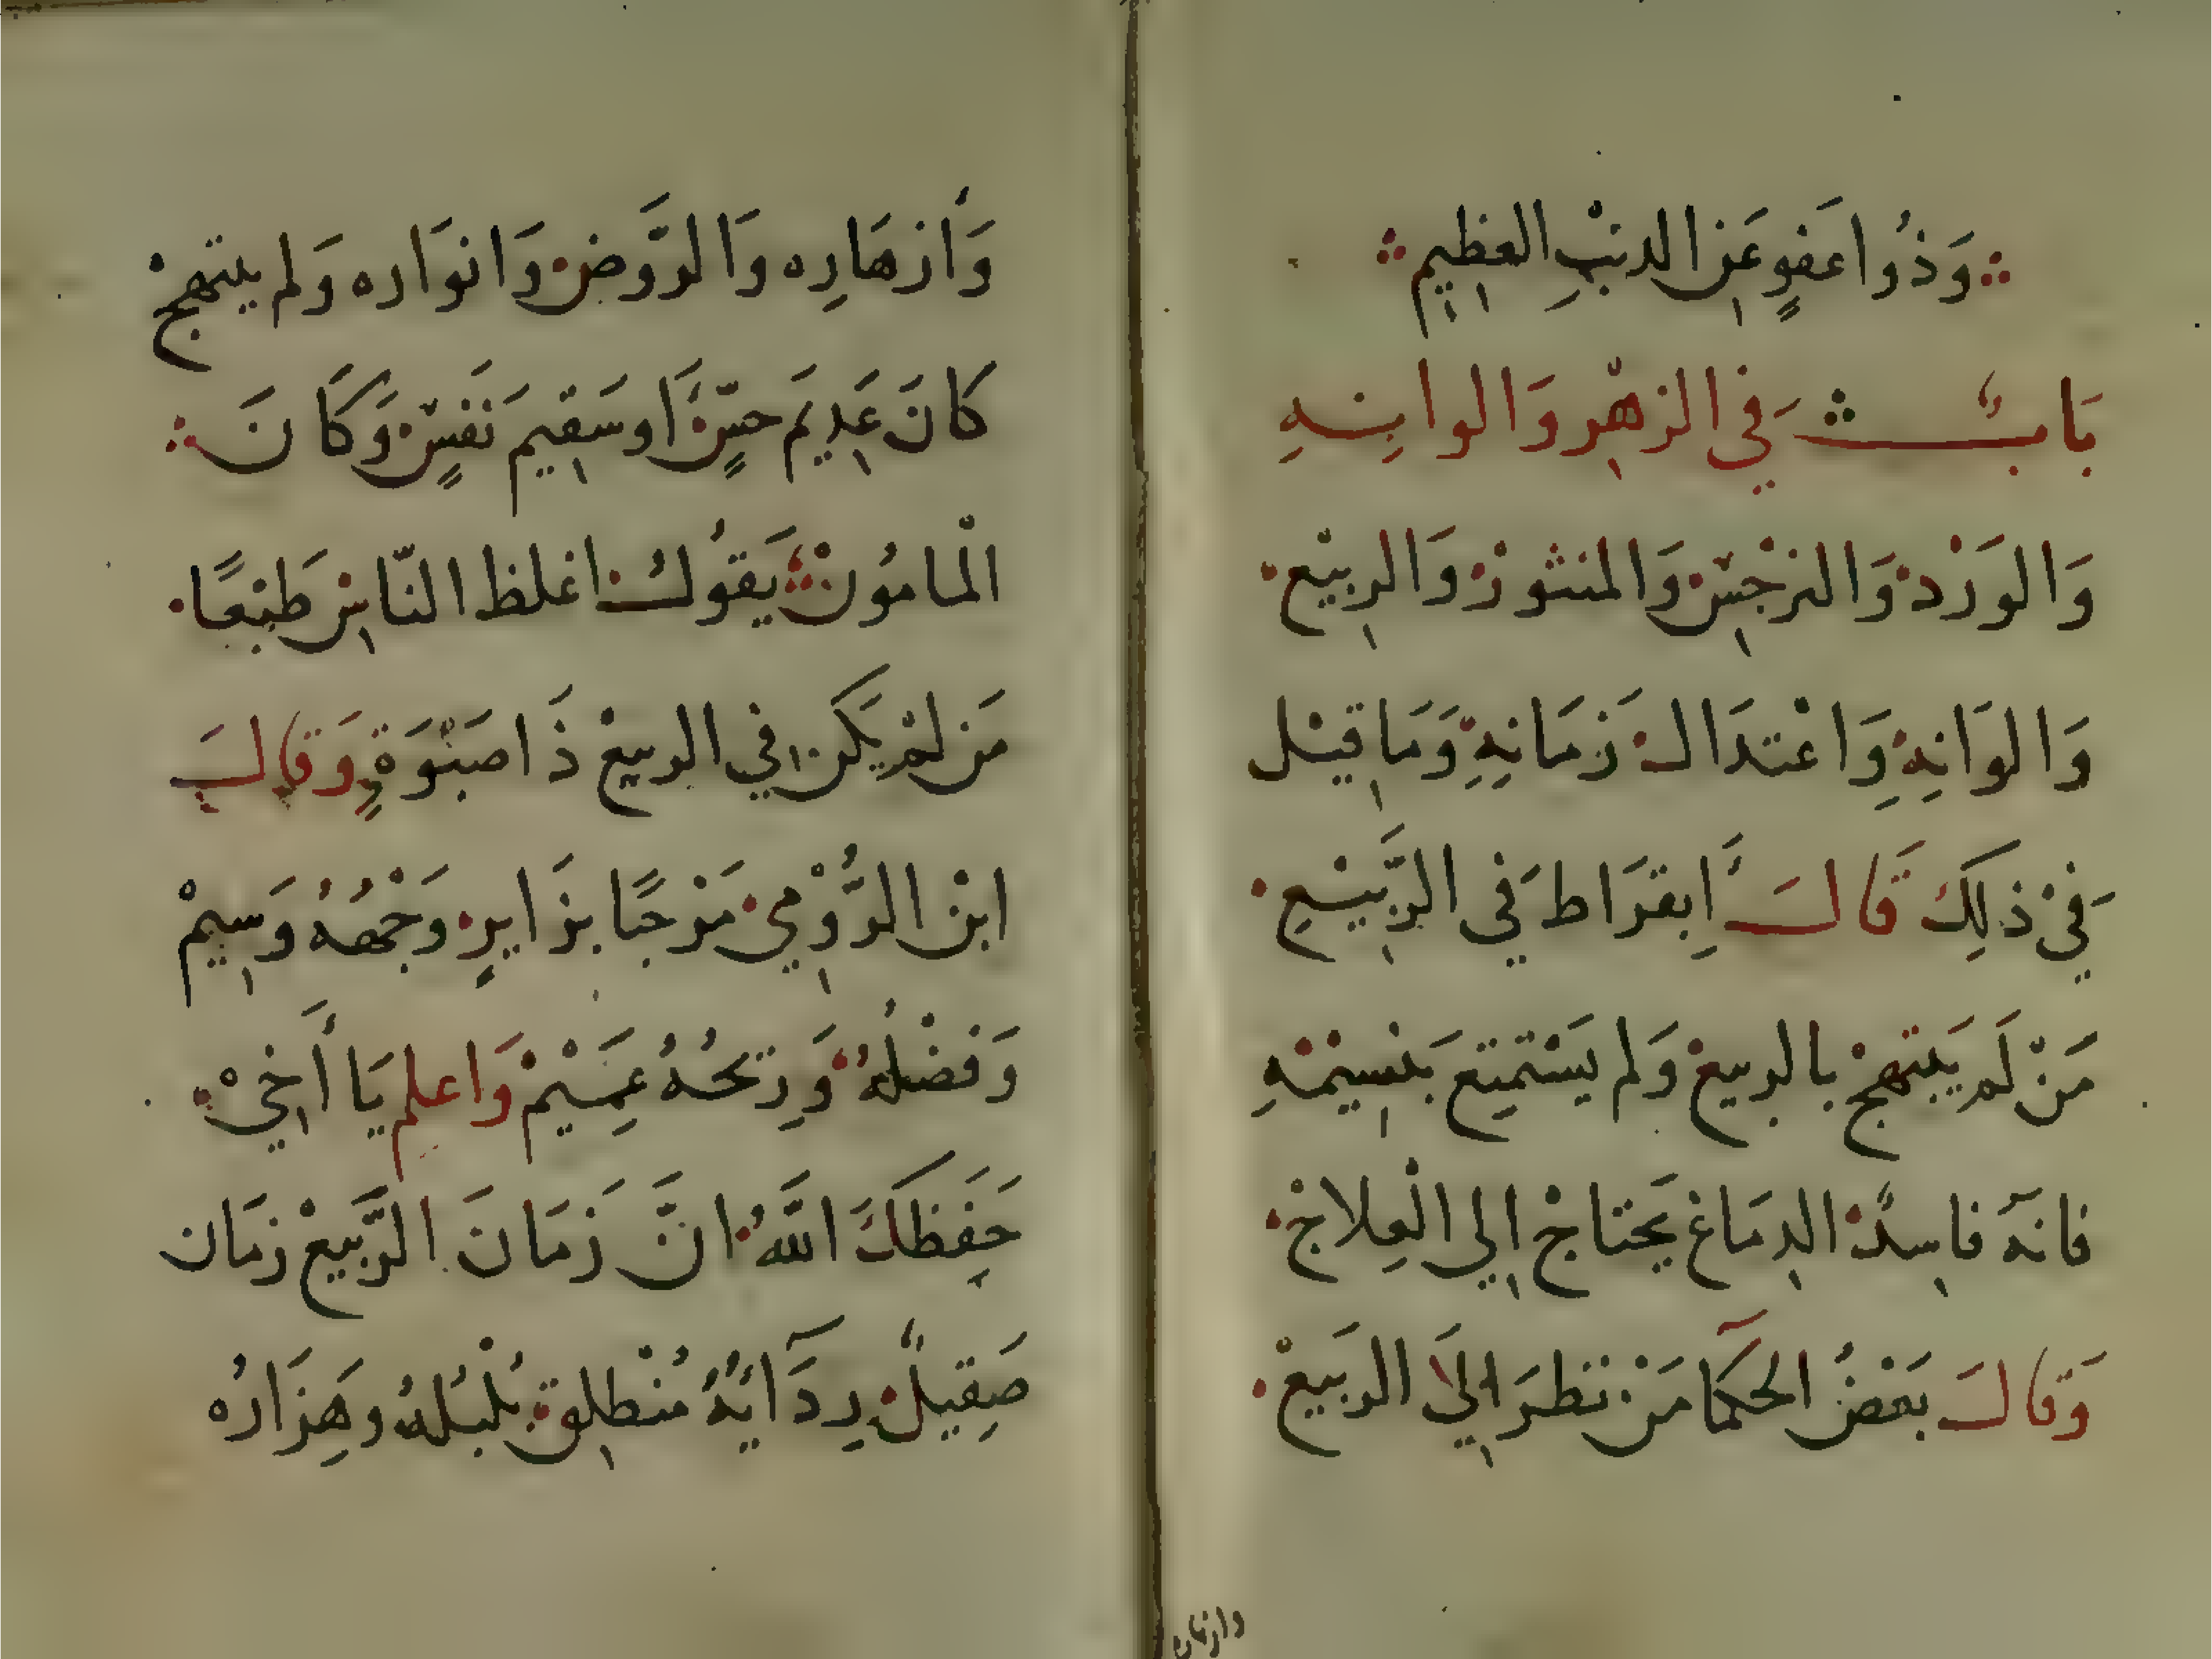 وَذُوا عَفوٍ عَنِ الدنبِ العَظِيمِ
بَابٌ فِي الزهرِ وَالوانِهِ
وَالوَرْد وَالنرْجِسْ وَالمنثورْ وَالرِبيْع
وَالوَانِهِ وَاعْتدَال زمَانِهِ وَمَا قيْل
فِيْ ذلِكَ قَالَ اَبقرَاط فَي الرَّبِيْعِ
مَنْ لَم يَبتهجْ بالربيعْ وَلم يَسْتمتِع بَنسِيْمهِ
فانهَ فاسِدُ الدِمَاغ يَحتاجْ اِلي الْعِلاجْ
وَقالَ بَعْضُ الحكمَا مَنْ نظرَ اِليَ الربَيعْ
وَأزهَارِه وَالرَّوضْ وَانوَاره وَلم يبتهجْ
كانَ عَدِيمَ حسٍّ اَو سَقِيمَ نَفسٍ وَكَانَ
الْمامُونْ يَقوُلُ اغلظ النّاسِ طبْعًا
مَن لمْ يَكن في الربيعْ ذَا صَبْوَةٍ وَقالَ
ابْن الرُّوْمِي مَرْحبًا بزَايرٍ وَجْههُ وَسِيمْ
وَفضْلُهُ وَرِتحُهُ عَمِيْمْ وَاعلم يَا أَخِيْ
حَفِظكَ اللَّهُ انَّ زَمَانَ الرَّبيعْ زمَان
صَقِيلٌ رِدَآيُهُ مُنْطلِق بُلبُلهُ وَهَزَارُه